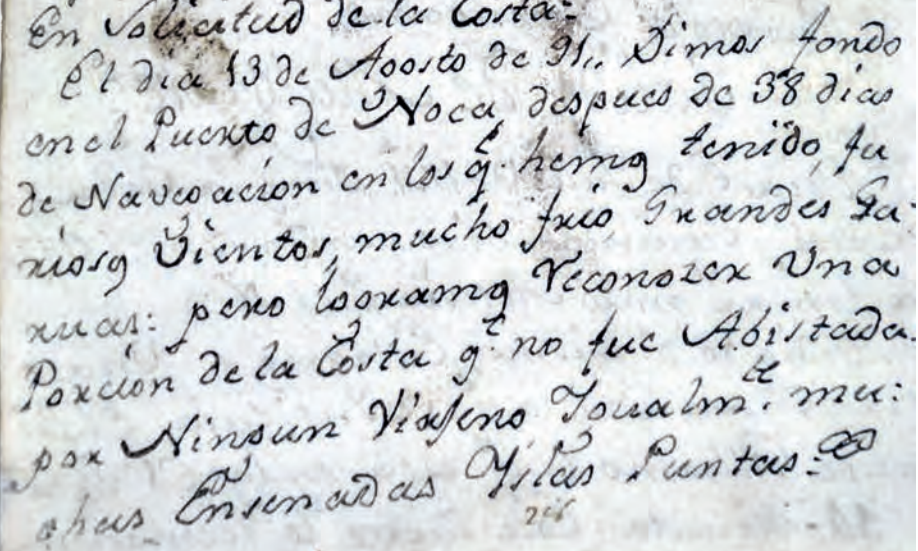 En Solicitud de la Costa=
El dia 13 de Agosto de 91,, Dimos fondo
en el Puerto de Noca, despues de 38 dias
de Navegacion en los q.e hemos tenido, fu
riosos Vientos, mucho frio Grandes Ga=
ruas: pero logramos Reconozer Una
Porcion de la Costa q.e no fue Abistada
por Ningun Viajero Igualm.te mu:
chas Ensenadas Yslas Puntas: